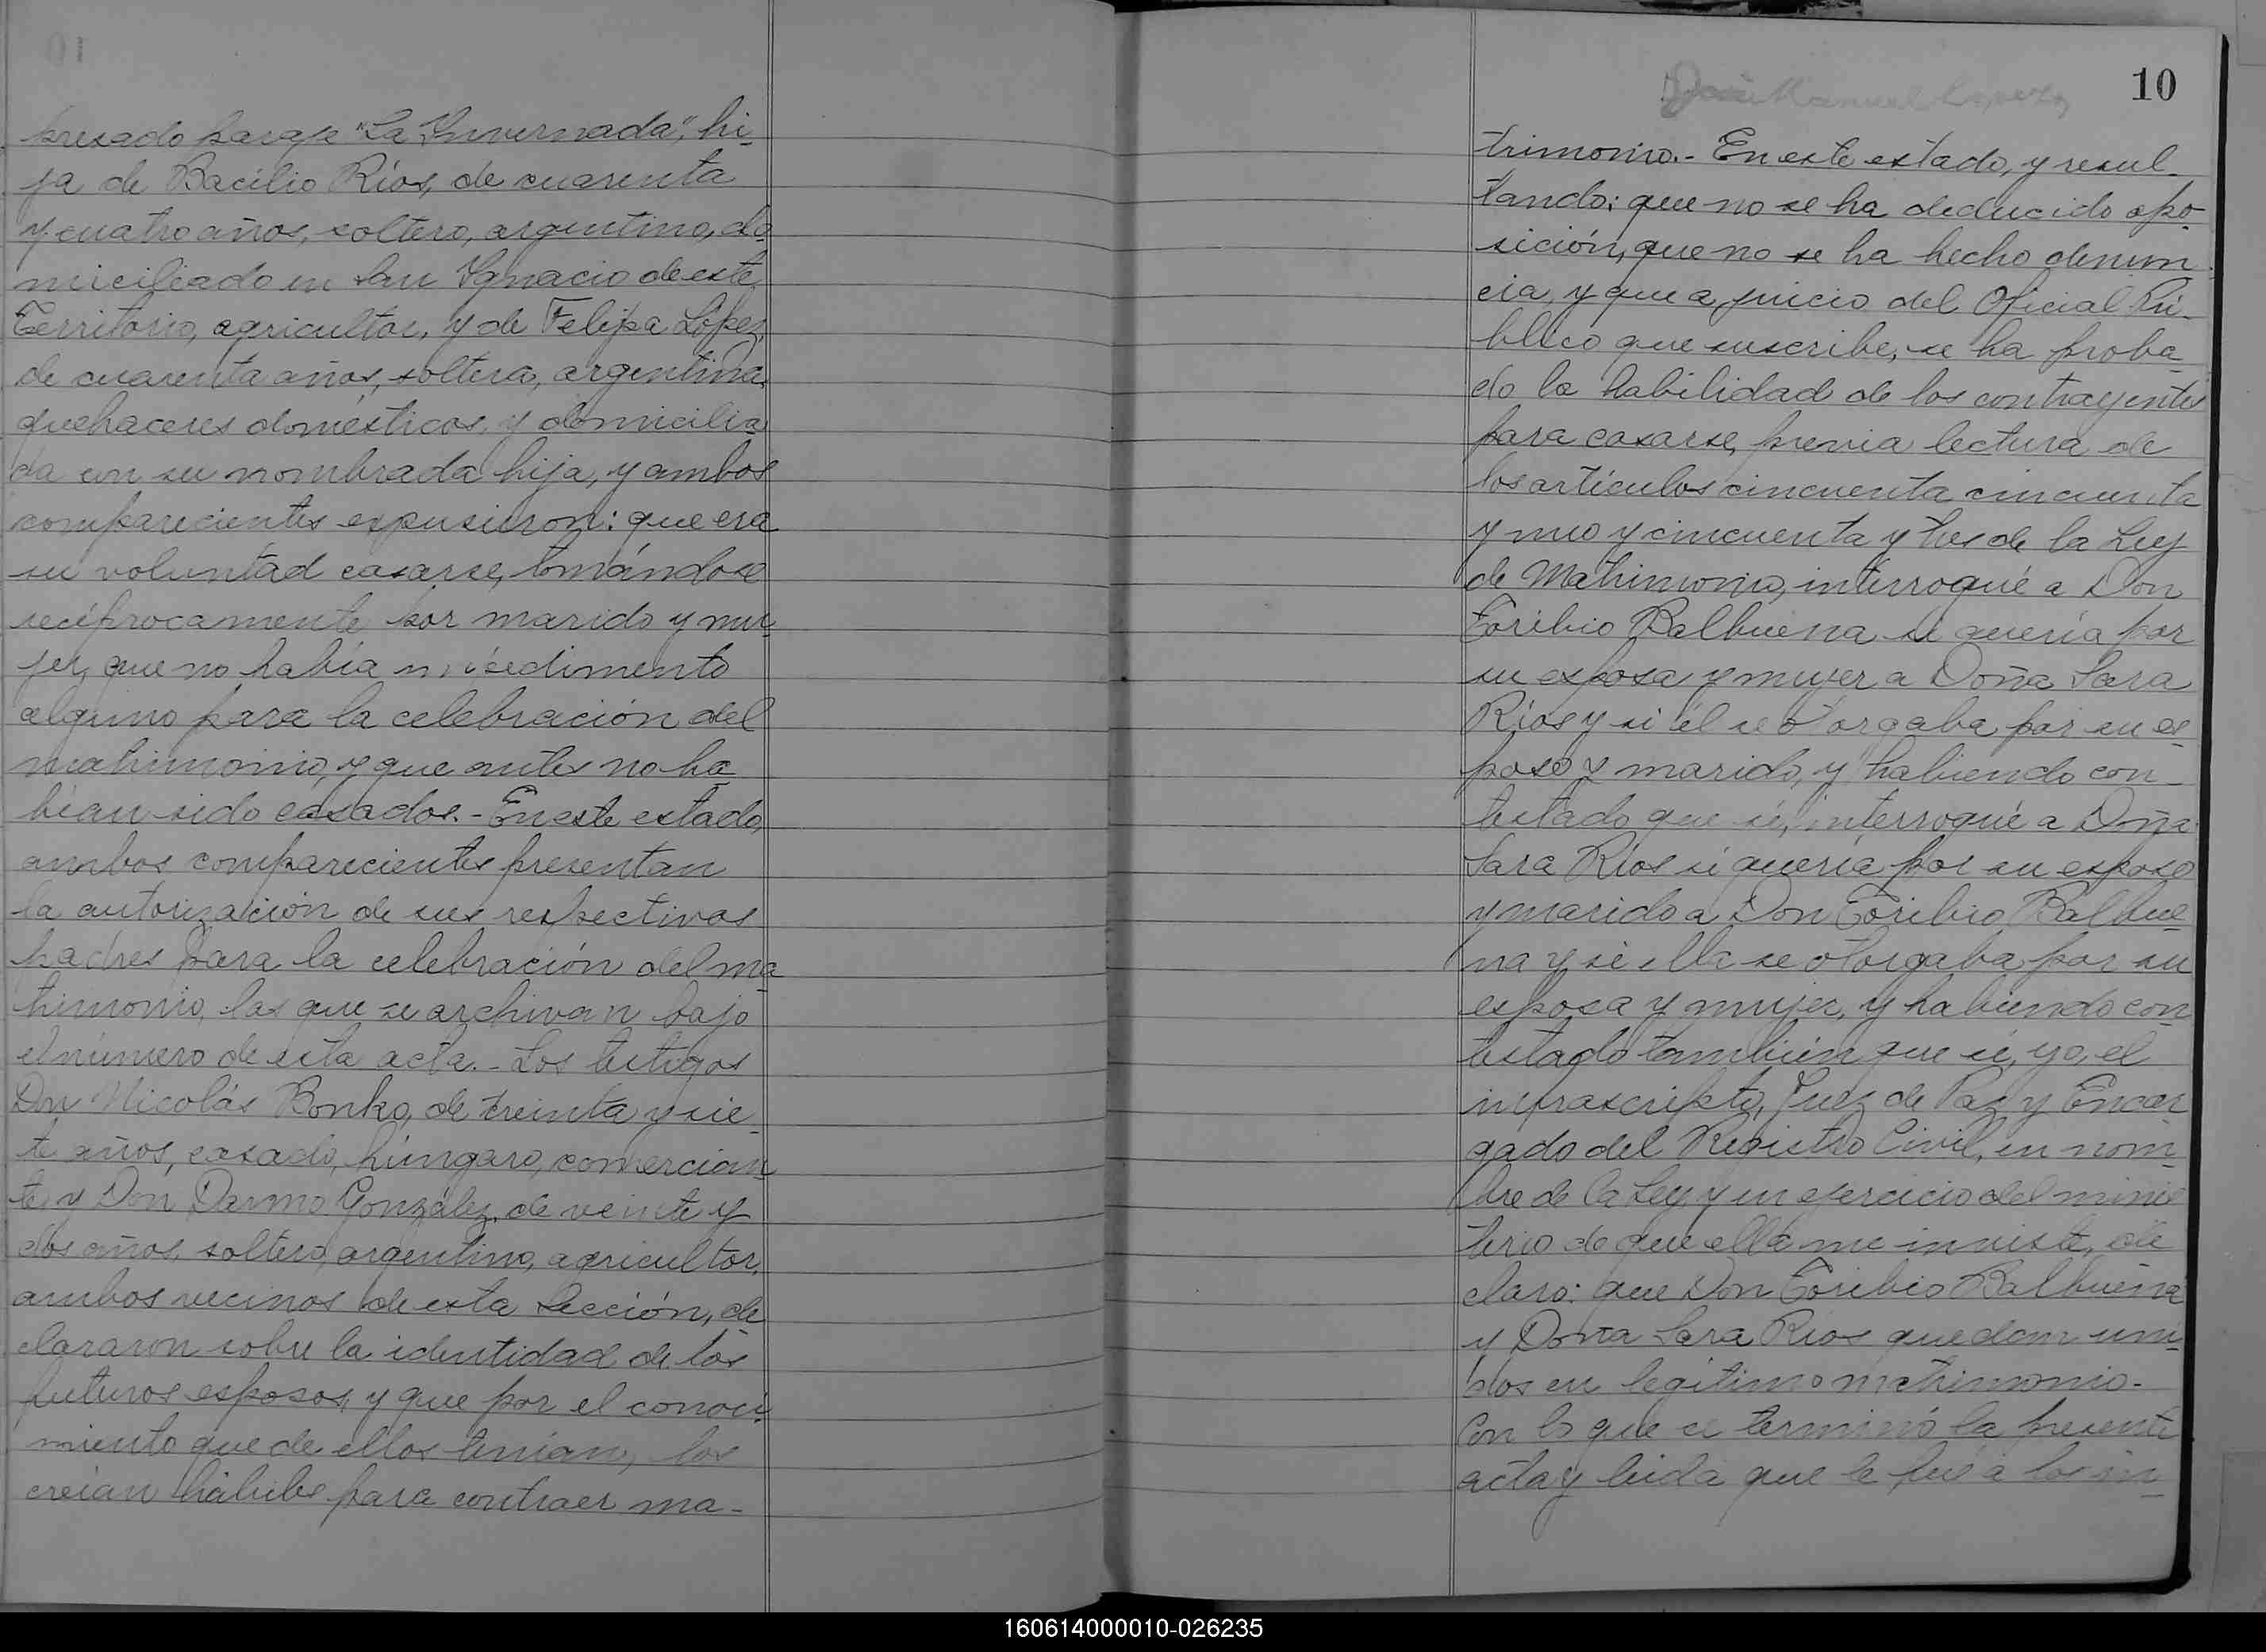 presado paraje "La Invernada", hi-
ja de Bacilio Ríos, de cuarenta
y cuatro años, soltero, argentino, do-
miciliado en San Ignacio de este
Territorio, agricultor, y de Felipa López,
de cuarenta años, soltera, argentina,
quehaceres domésticos, y domicilia-
da con su nombrada hija, y ambos
comparecientes expusieron: que era
su voluntad casarse, tomándose
recíprocamente por marido y mu-
jer, que no había impedimento
alguno para la celebración del
matrimonio, y que antes no ha-
bían sido casados.- En este estado,
ambos comparecientes presentan
la autorización de sus respectivos
padres para la celebración del ma-
trimonio, las que se archivan bajo
el número de esta acta.- Los testigos
Don Nicolás Bonko, de treinta y sie-
te años, casado, húngaro, comercian-
te, y Don Darmo González, de veinte y
dos años, soltero, argentino, agricultor,
ambos vecinos de esta Sección, de-
clararon sobre la identidad de los
futuros esposos, y que por el conoci-
miento que de ellos tenían, los
creían hábiles para contraer ma-
10
Manuel Lopez
trimonio.- En este estado, y resul-
tando: que no se ha deducido opo-
sición, que no se ha hecho denun-
cia, y que a juicio del Oficial Pú-
blico que suscribe, se ha proba-
do la habilidad de los contrayentes
para casarse, previa lectura de
los artículos cincuenta cincuenta
y uno y cincuenta y tres de la Ley
de Matrimonio, interrogué a Don
Toribio Balbuena si quería por
su esposa y mujer a Doña Sara
Ríos y si él se otorgaba por su es-
poso y marido, y habiendo con-
testado que sí, interrogué a Doña
Sara Ríos si quería por su esposo
y marido a Don Toribio Balbue-
na y si ella se otorgaba por su
esposa y mujer, y habiendo con-
testado también que sí, yo, el
infrascripto, Juez de Paz y Encar-
gado del Registro Civil, en nom-
bre de la Ley y en ejercicio del minis-
terio de que ella me inviste, de-
claro: que Don Toribio Balbuena
y Doña Sara Ríos quedan uni-
dos en legítimo matrimonio.-
Con lo que se terminó la presente
acta y leída que le fué a los in-
160614000010-026235